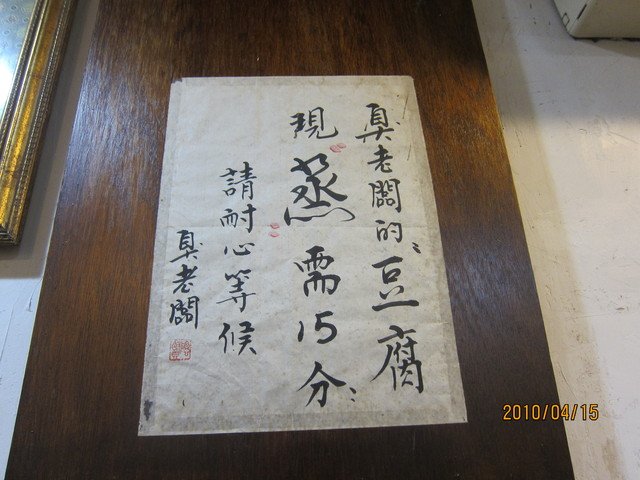 臭老闆的豆腐
現蒸需15分
請耐心等候
臭老闆
2010/04/15